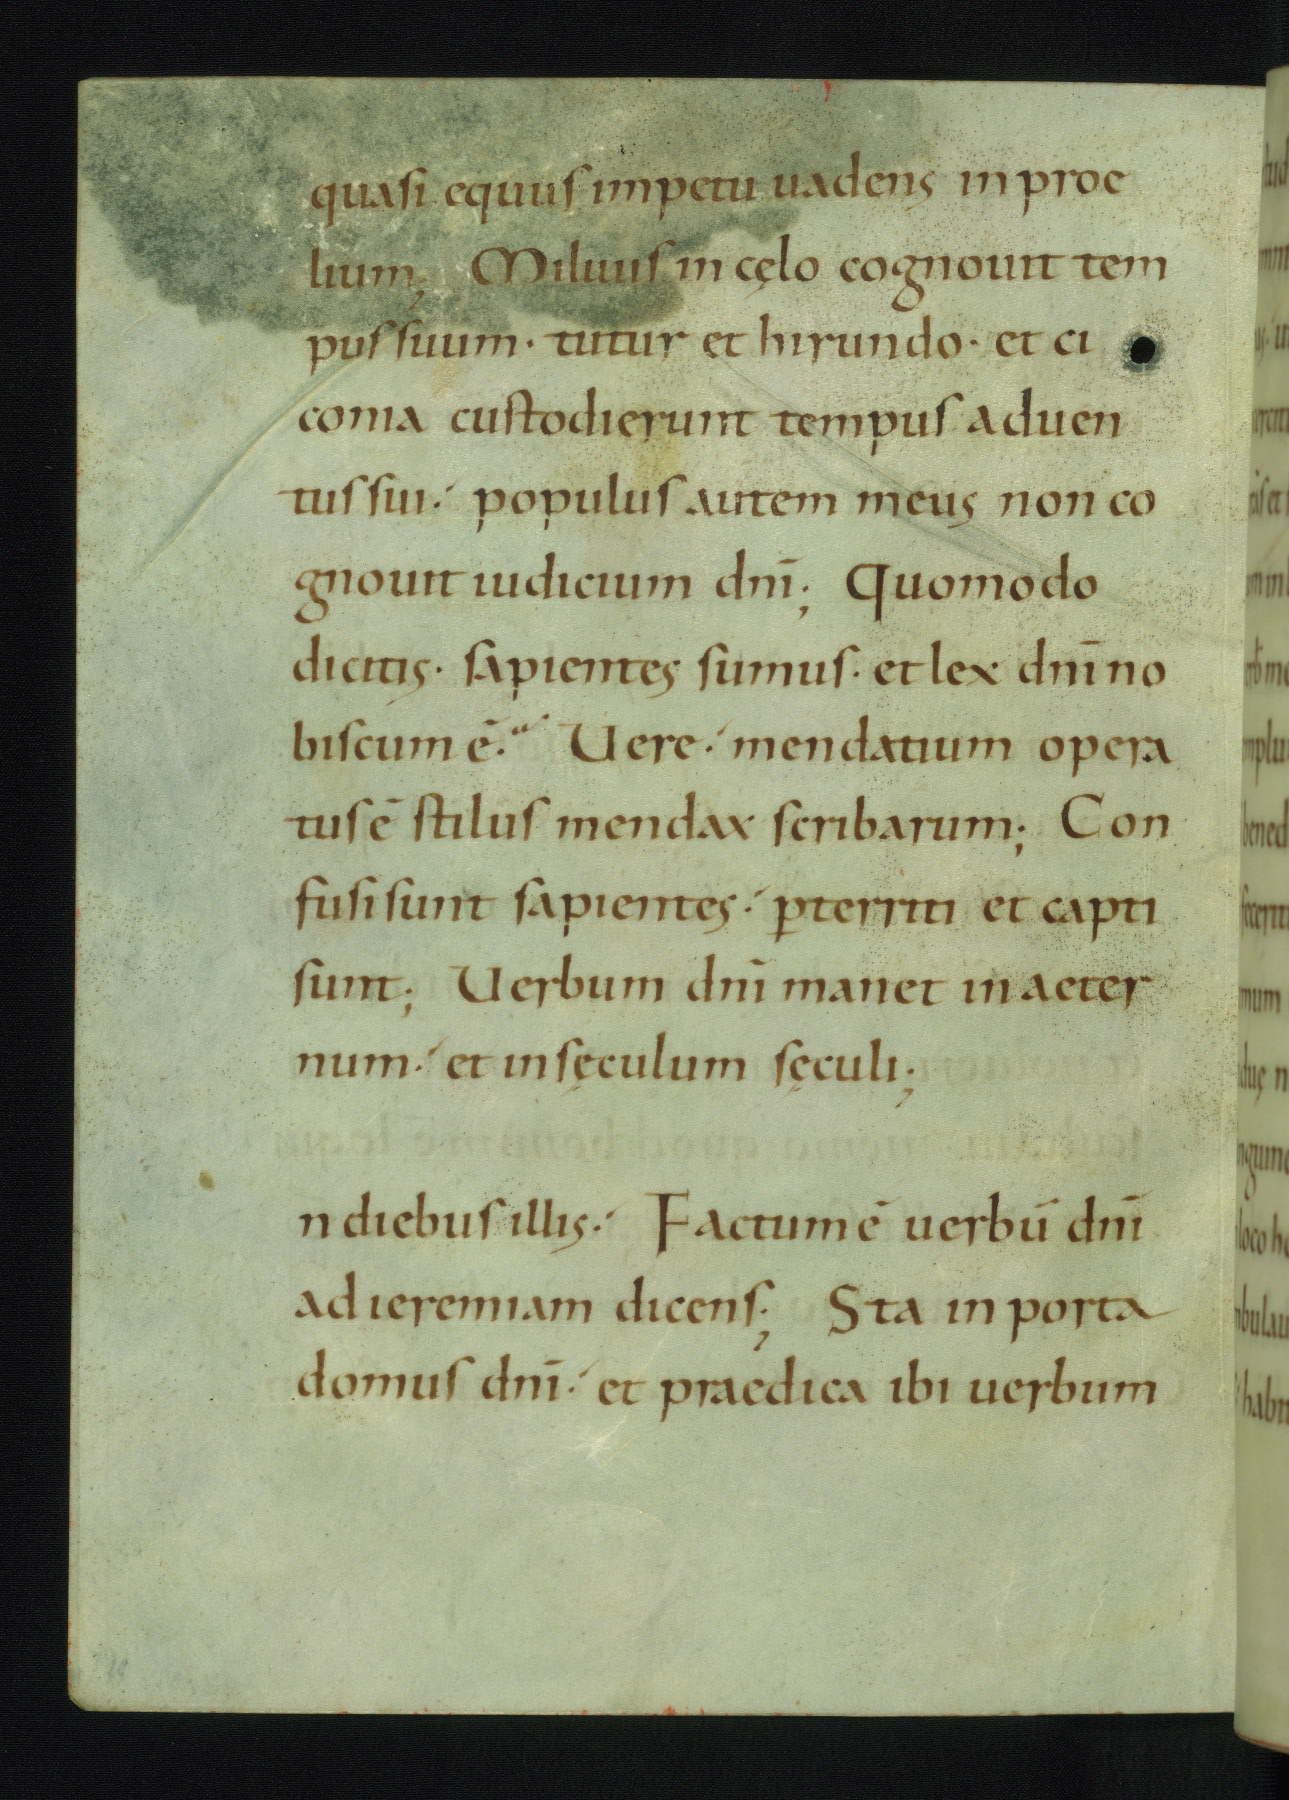 quasi equus impetu uadens in proe
lium; Miluus in cęlo cognouit tem
pus suum· tutur et hirundo· et ci
conia custodierunt tempus aduen
tus sui·́ populus autem meus non co
gnouit iudicium dnī; Quomodo
dicitis· sapientes sumus· et lex dnī no
biscum ē· Uere·́ mendatium opera
tus ē stilus mendax scribarum; Con
fusi sunt sapientes·́ ꝑterriti et capti
sunt; Uerbum dnī manet in aeter
num·́ et in sęculum sęculi;
n diebus illis·́ Factum ē uerbū dnī
ad ieremiam dicens; Sta in porta
domus dnī·́ et praedica ibi uerbum